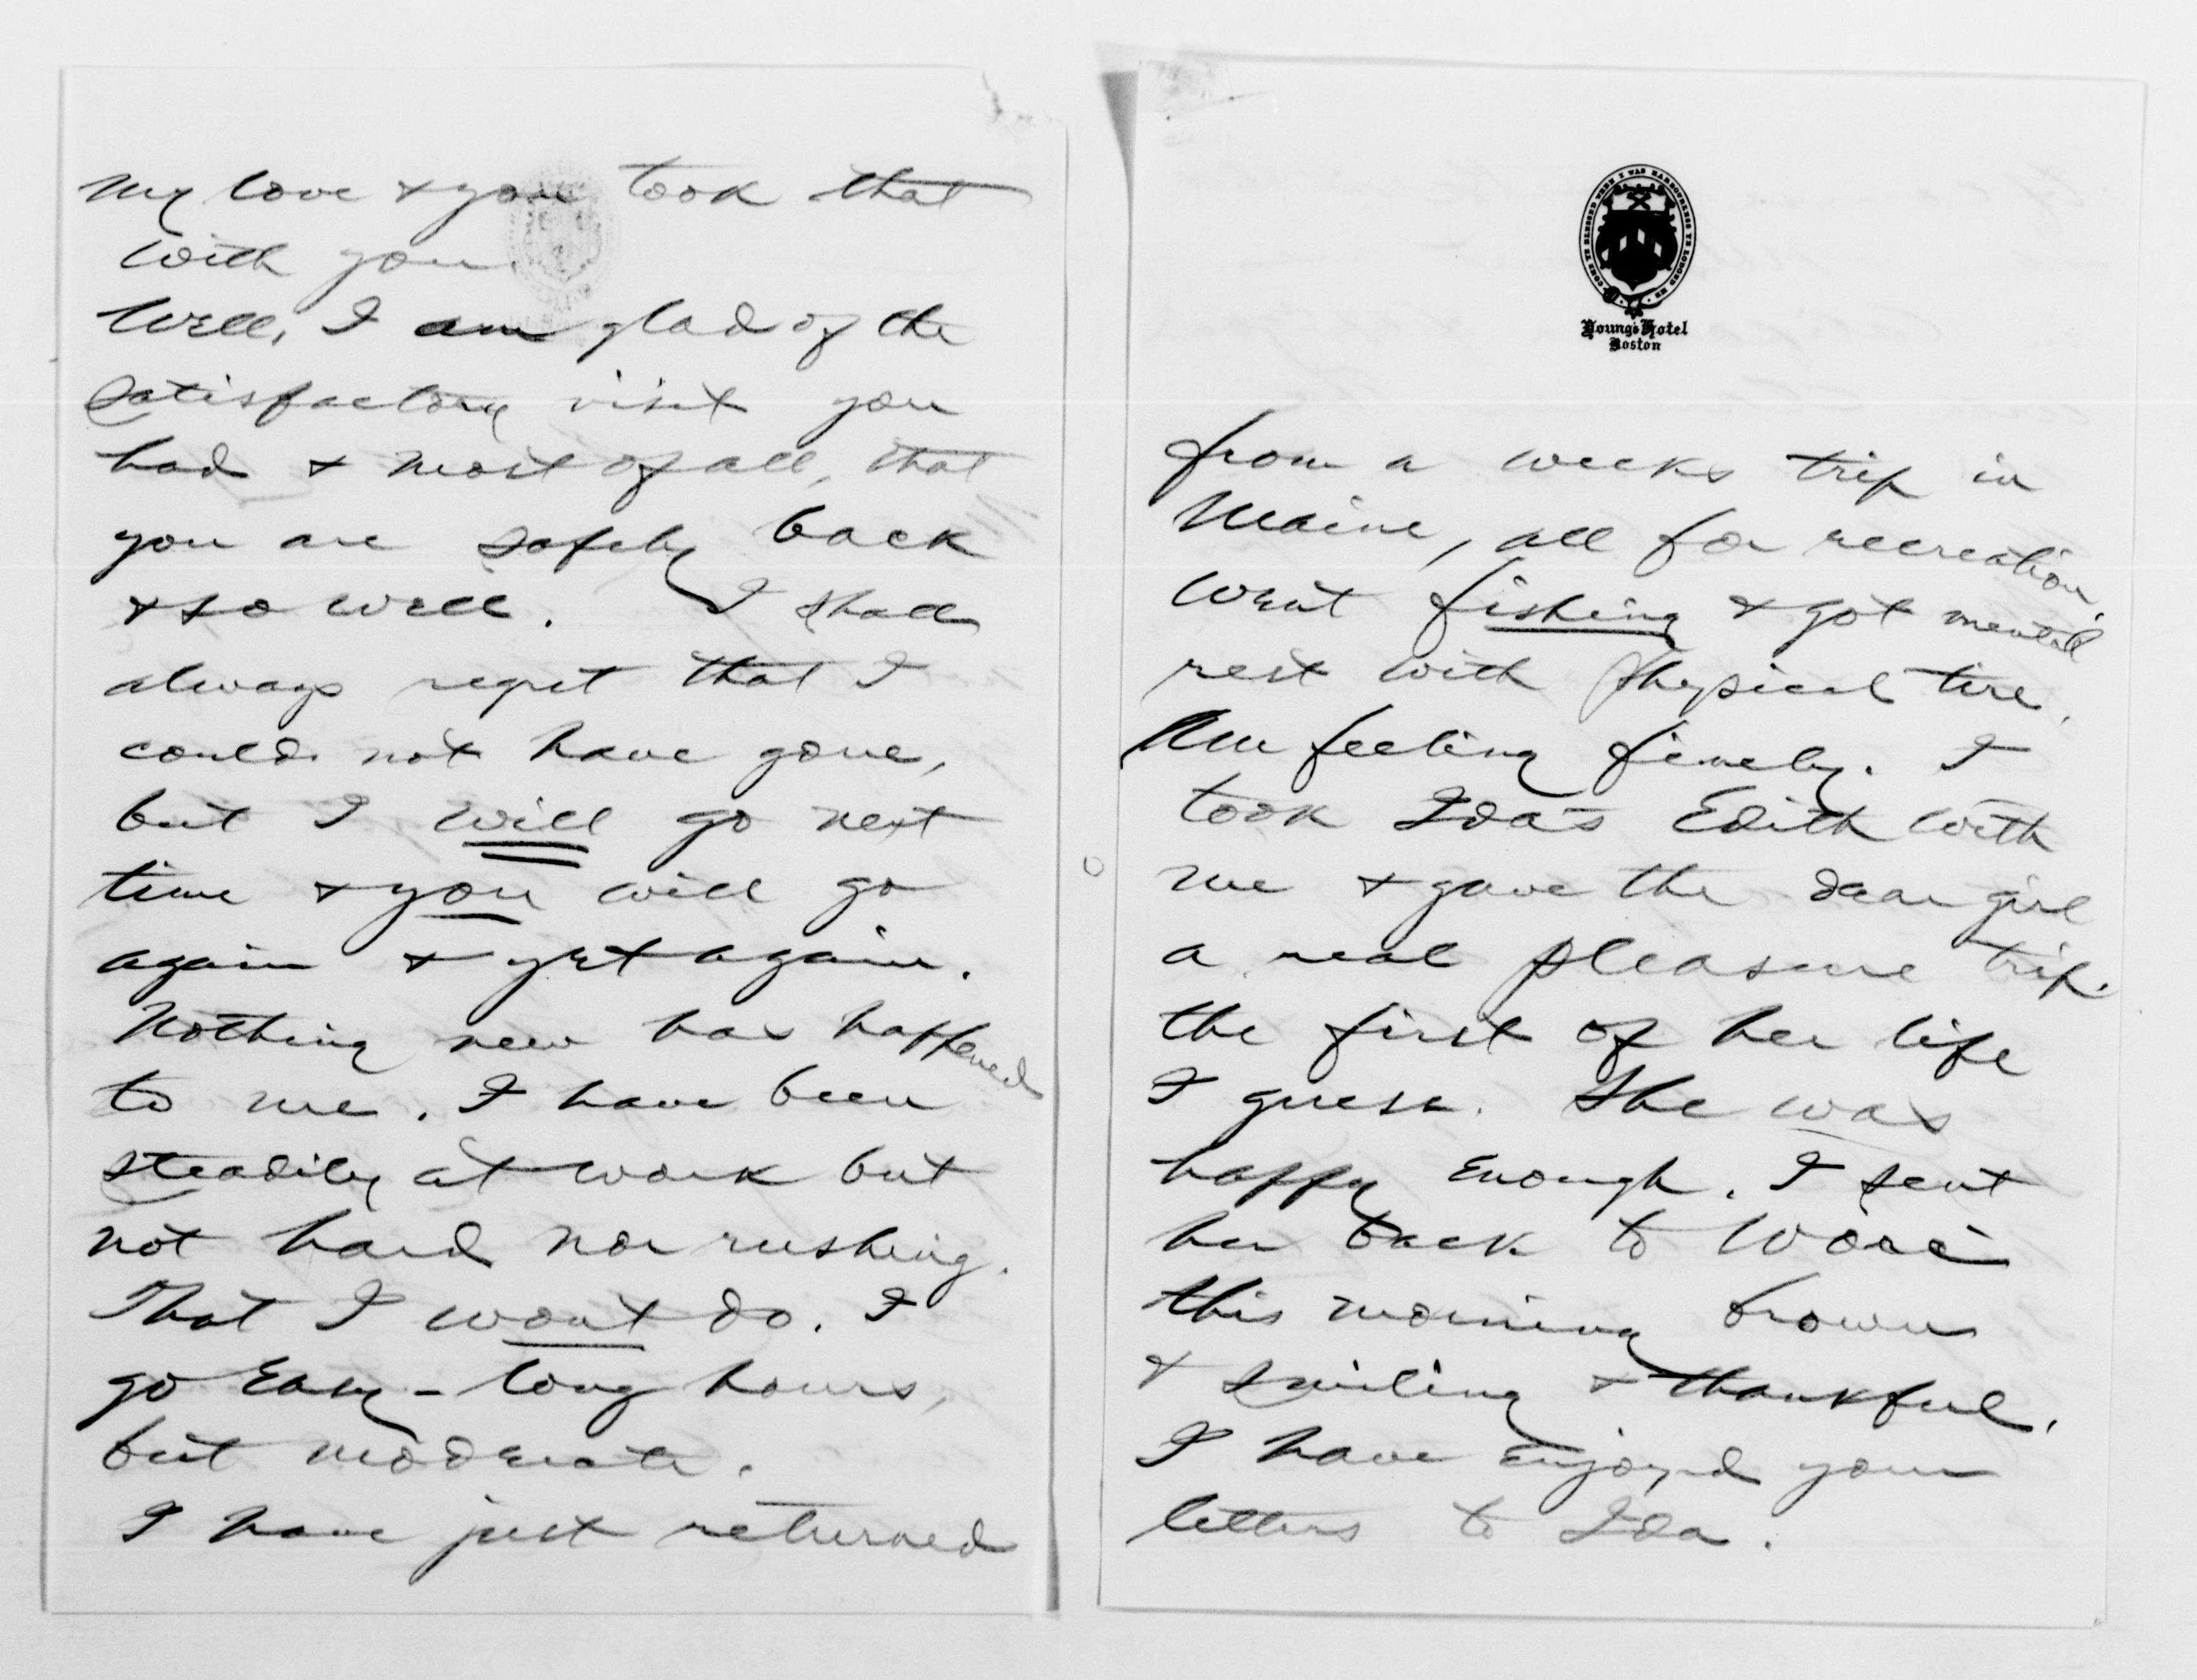 my love & you took that
with you.
Well, I am glad of the
satisfactory visit you
had & most of all, that
you are safely back
& so well. I shall
always regret that I
could not have gone,
but I will go next
time & you will go
again & yet again.
Nothing new has happened
to me. I have been
steadily at work but
not hard nor rushing.
That I wont do. I
go Easy - long hours,
but moderate.
I have just returned
COME YE BLESSED WHEN I WAS HARBOURLESS YE LODGED ME
Young's Hotel
Boston
from a weeks trip in
Maine, all for recreation,
went fishing & got mental
rest with physical tire.
Am feeling finely. I
took Ida's Edith with
me & gave the dear girl
a real pleasure trip.
the first of her life
I guess. She was
happy Enough. I sent
her back to Worc
this morning brown
& smiling & thankful.
I have enjoyed your
letters to Ida.